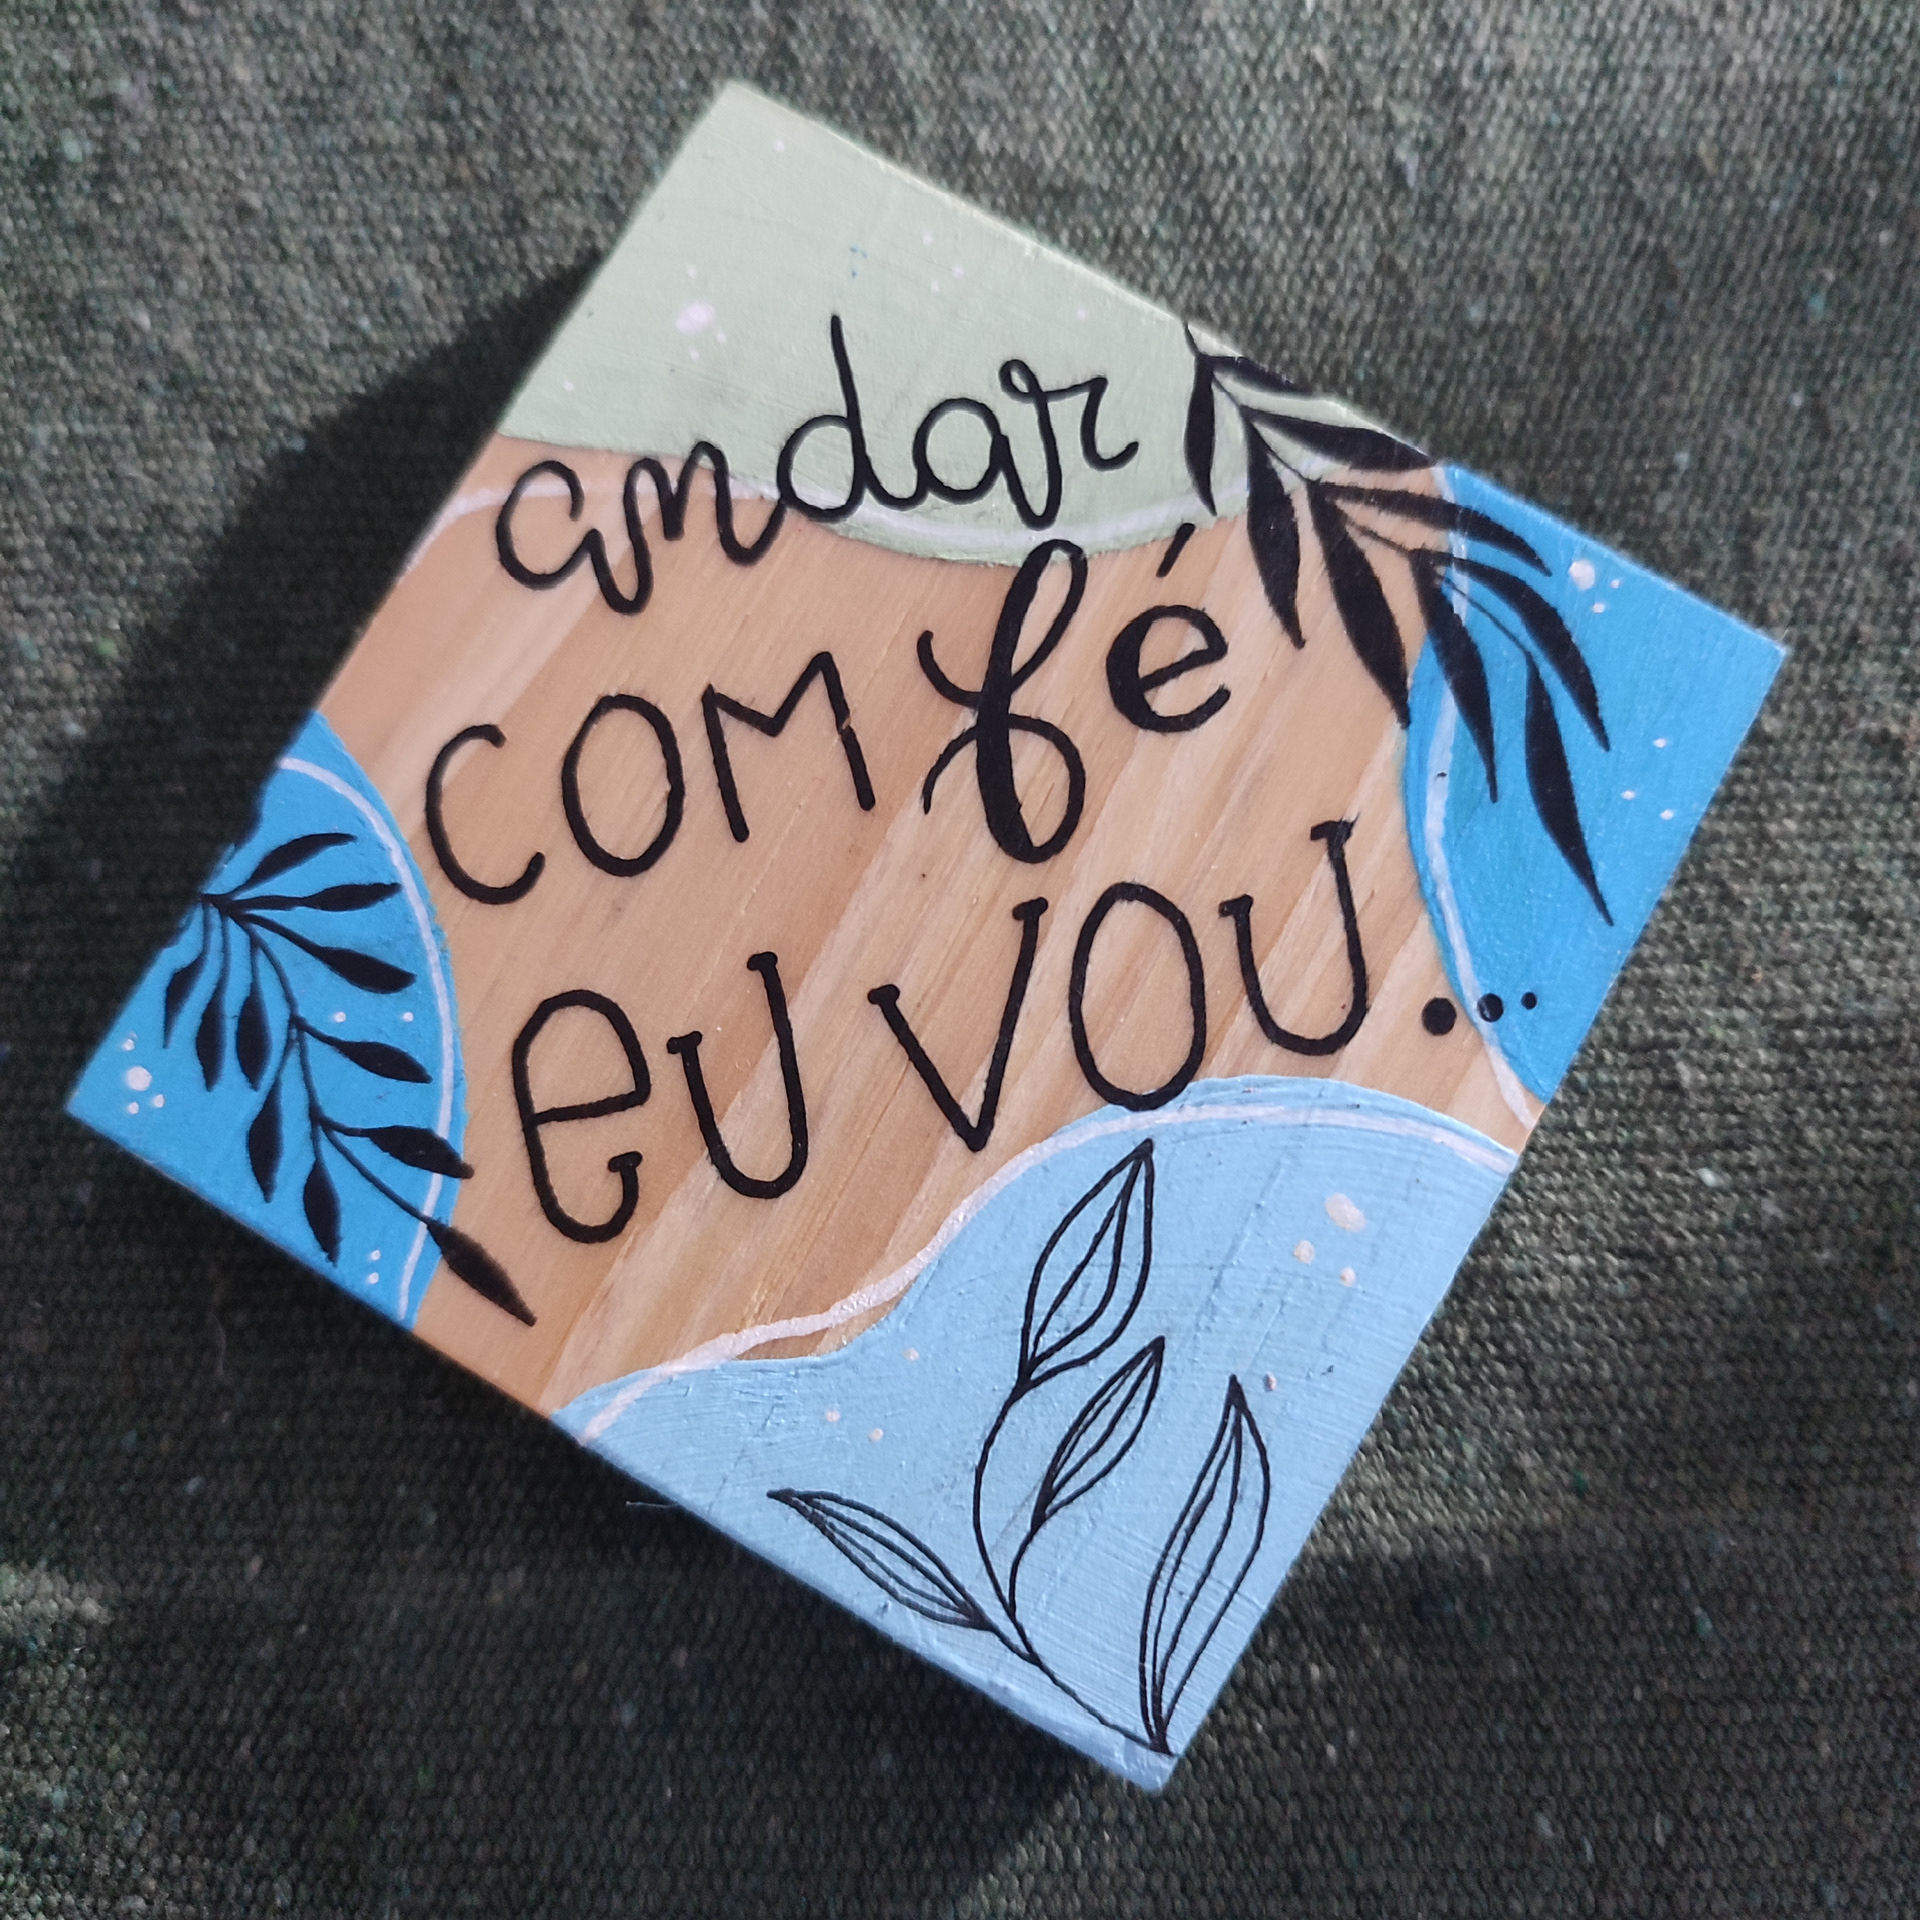 andar
COM fé
eu vou...